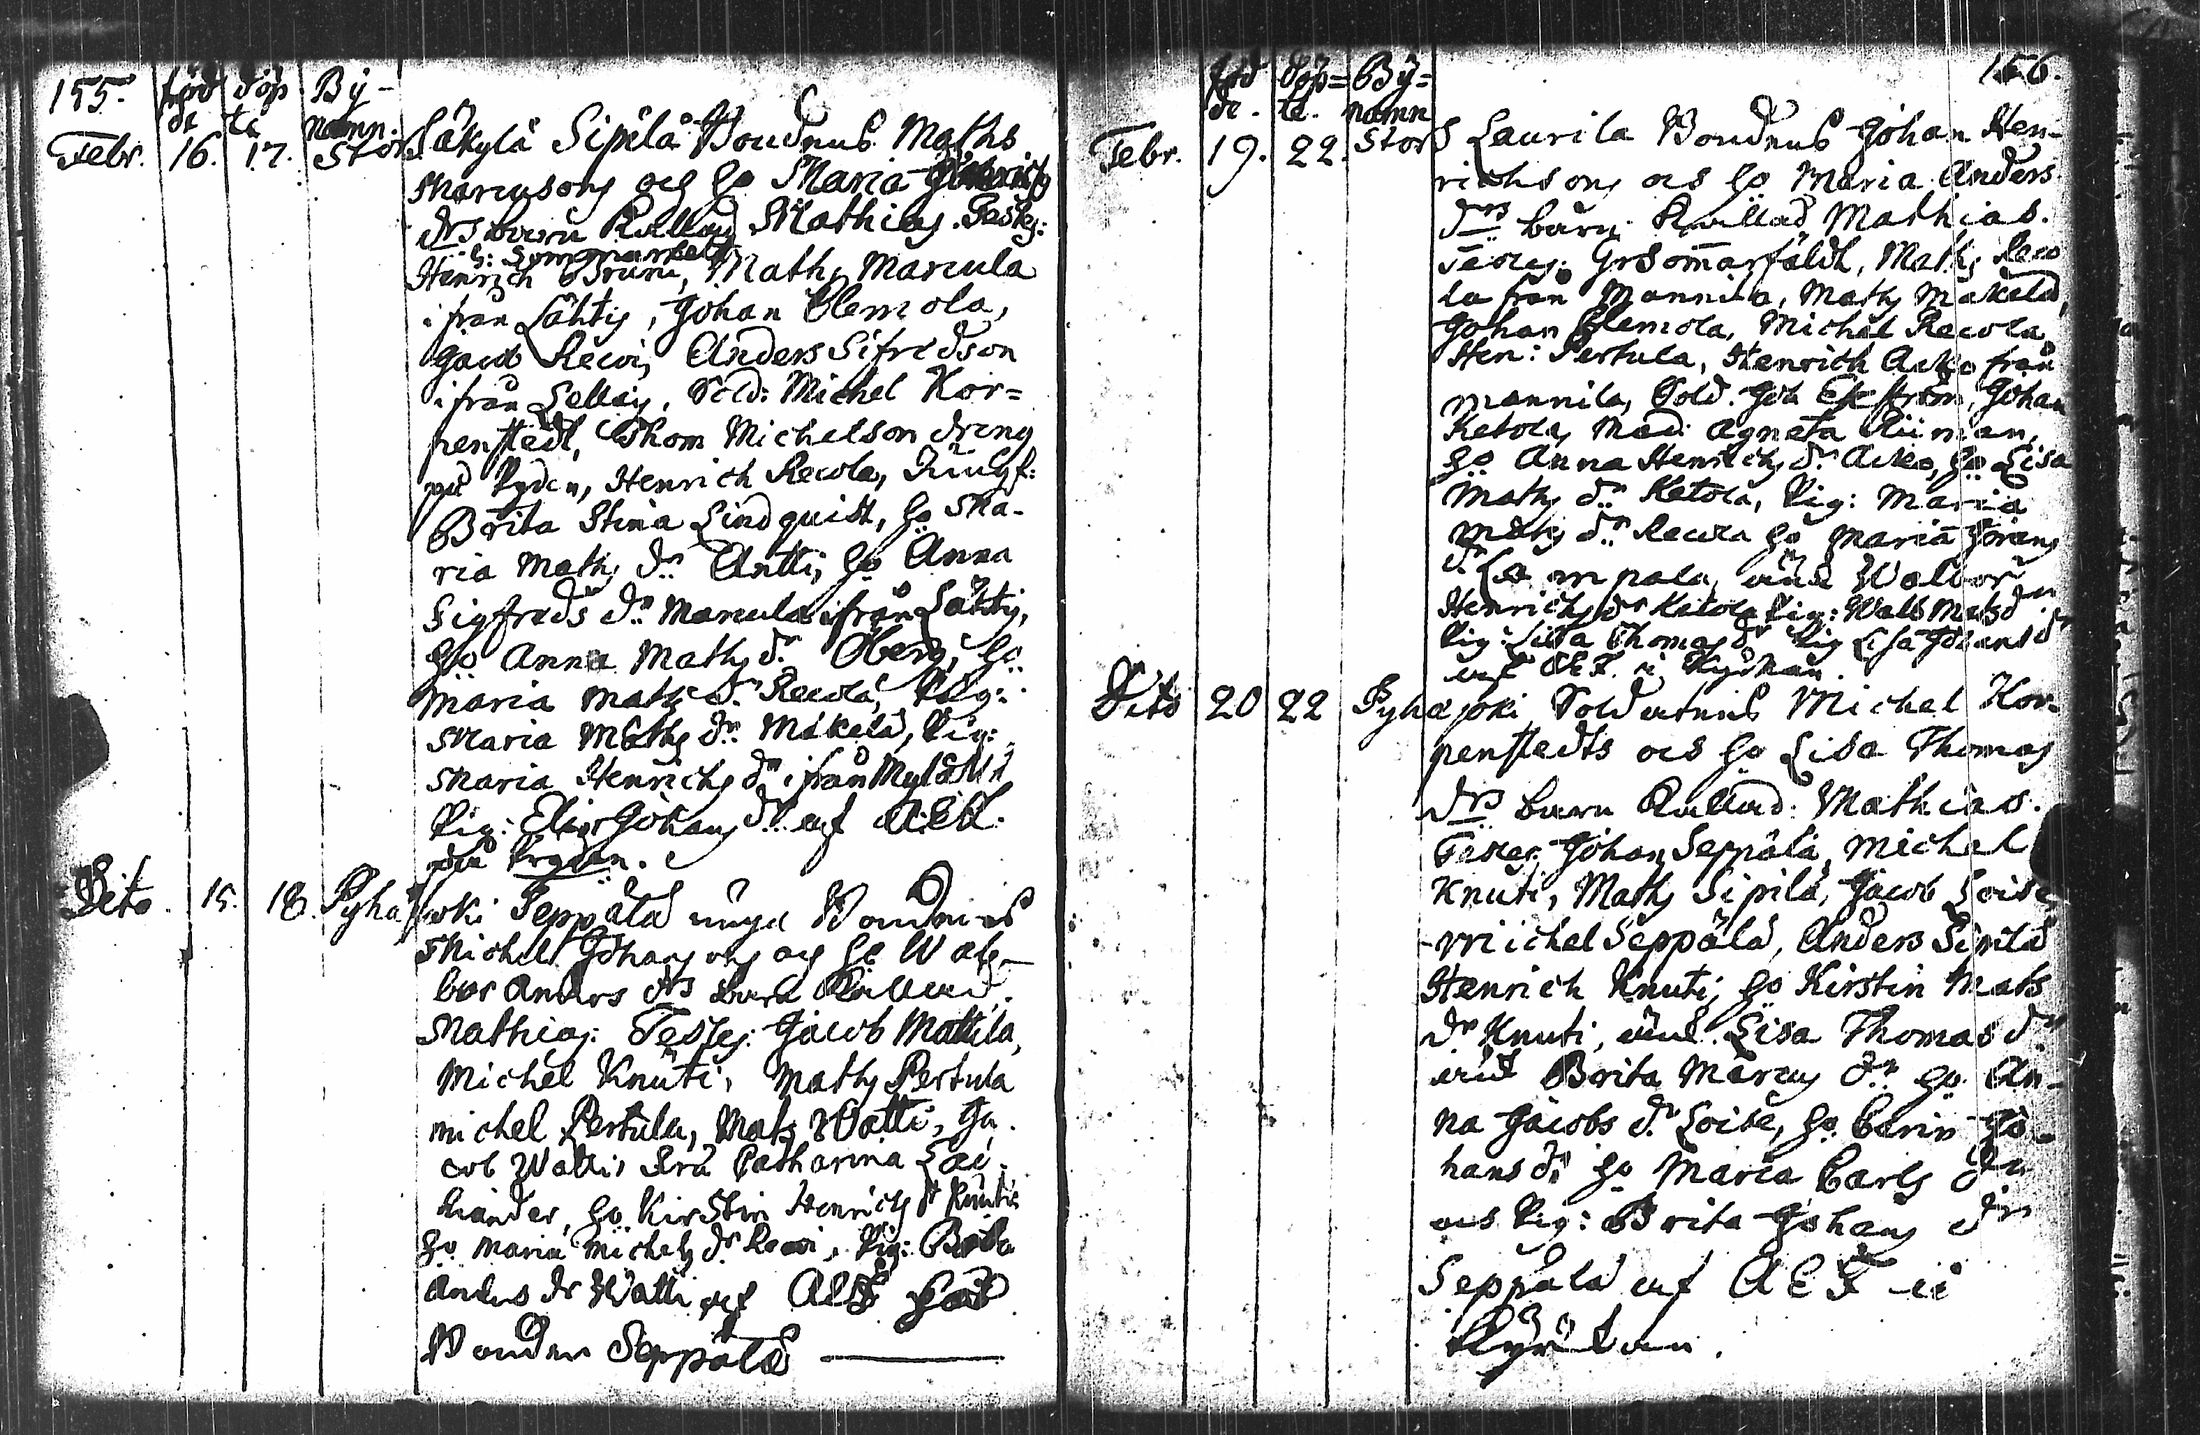 155. född döp By-
de te namn.
Febr. 16. 17. Stor Säkylä Sipilä Bondens Maths
Marcusons och ho Maria
drs barn Kallad Mathias. Testes:
h: Sommarfelt
Henrich Bruni, Maths Marcula
ifrån Lähtis, Johan Clemola,
Jacob Recvi, Anders Sifredson
ifrån Lellais, Sold: Michel Kor=
penstedt, Thom Michelson dreng
på Ryden, Henrich Recola, Jungf:
Brita Stina Lindquist, ho Ma-
ria Maths dr Antti, ho Anna
Sigfreds dr Marcula ifrån Lähtis,
ho Anna Maths dr Oberg, ho
Maria Maths dr Recola, Pig:
Maria Maths dr Mäkelä, Pig:
Maria Henrichs dr ifrån
Pig: Johans dr af
på
Dito. 15. 18. Pyhäjoki Seppälä unga Bondens
Michel Johansons och ho Wal-
bor Anders drs barn Kallad
Mathias: Testes: Jacob Mattila,
Michel Knuti, Maths Pertula
Michel Pertula, Maths Watti, Ja-
cob Watti, Fru Catharina
ho Kirstin Henrichs dr Knuti
ho Maria Michels dr Pig: Brita
Anders dr Watti af
Bonden Seppälä
156.
föd döp= By=
de. te. namn
Febr. 19. 22. Stor S Laurila Bondens Johan Hen-
richsons och ho Maria Anders
drs barn Kallad Mathias.
Testes: Gr Som̄arfäldt, Maths Reco
la från Mannila, Maths Mäkelä,
Johan Clemola, Michel Recola
Hen: Pertula, Henrich Acko från
Mannila, Sold. Joh Ekström, Johan
Ketola, Mad: Agneta
ho Anna Henrichs dr Acko, ho Lisa
Maths dr Ketola, Pig: Maria
Maths dr Recola ho Maria Görans
dr änk Walbor
Henrichs dr Ketola Pig: Walb Mats dr
Pig: Lisa Thomas dr Pig Lisa Johans dr
af AEF i Kyrkan.
Dito 20 22 Pyhäjoki Soldatens Michel Kor-
penstedts och ho Lisa Thomas
drs barn Kallad: Mathias.
Testes: Johan Seppälä, Michel
Knuti, Maths Sipilä, Jacob Loite
Michel Seppälä, Anders Sipilä
Henrich Knuti, ho Kirstin Mats
dr Knuti, änk. Lisa Thomas dr
änk Brita Marcus dr ho An-
na Jacobs dr Loite, ho Carin Jo-
hans dr ho Maria Carls dr
och Pig: Brita Johans dr
Seppälä af AEF i
Kyrkan.